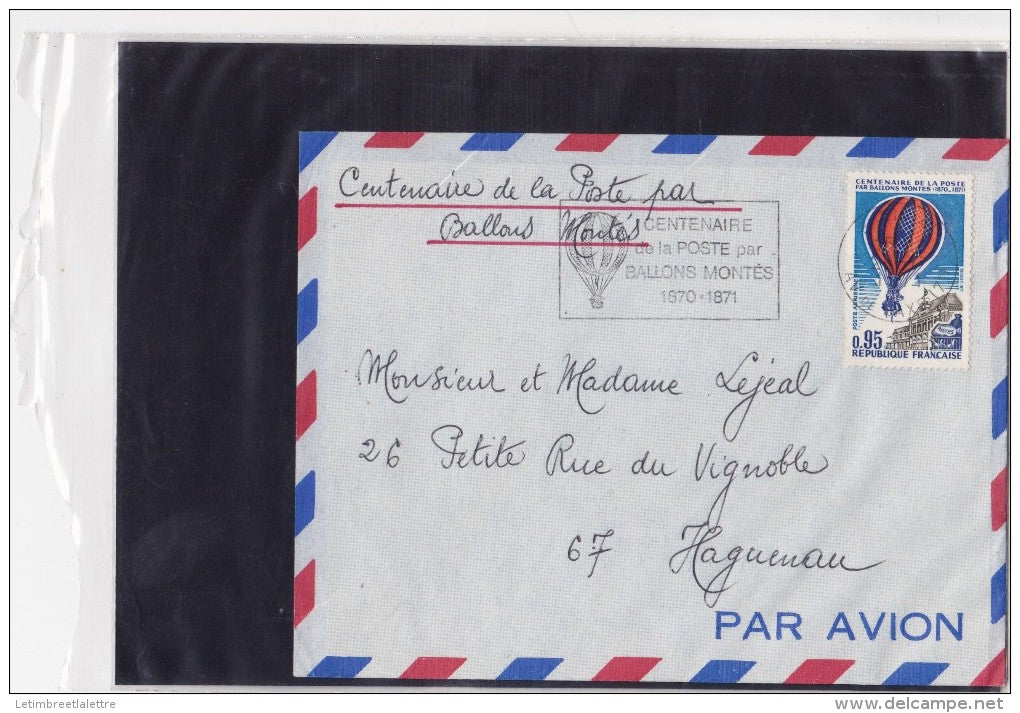 Centenaire de la Poste par
Ballons Montés
CENTENAIRE
de la POSTE par
BALLONS MONTÉS
1870-1871
CENTENAIRE DE LA POSTE
PAR BALLONS MONTÉS (1870-1871)
POSTE AÉRIENNE
0.95
REPUBLIQUE FRANÇAISE
Monsieur et Madame Lejéal
26 Petite Rue du Vignoble
67 Haguenau
PAR AVION
Letimbreetlalettre
delcampe.net